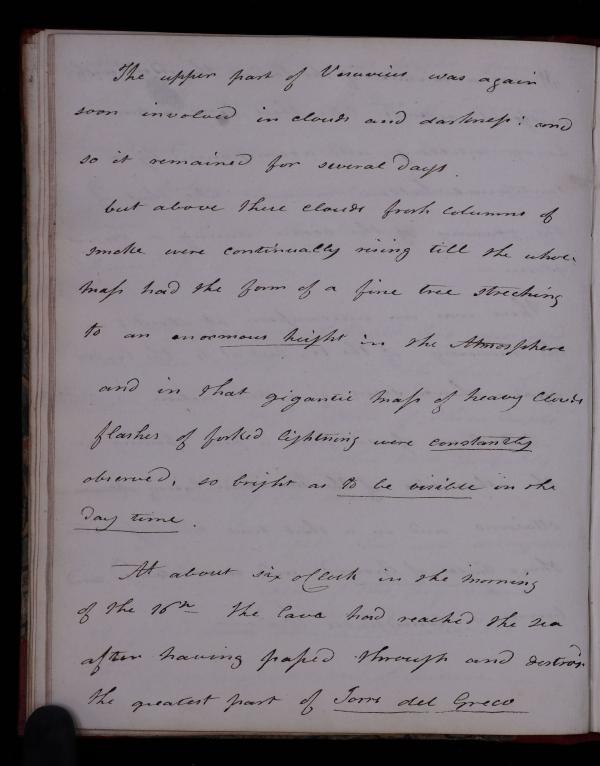 The upper part of Vesuvius was again
soon involved in clouds and darkness: and
so it remained for several days.
but above these clouds fresh columns of
smoke were continually rising till the whole
mass had the form of a pine tree streching
to an enormous height in the Atmosphere
and in that gigantic mass of heavy Clouds
flashes of forked lightning were constantly
observed, so bright as to be visible in the
day time.
At about six oClock in the morning
of the 16th the lava had reached the sea
after having passed through and destroy
the greatest part of Torre del Greco